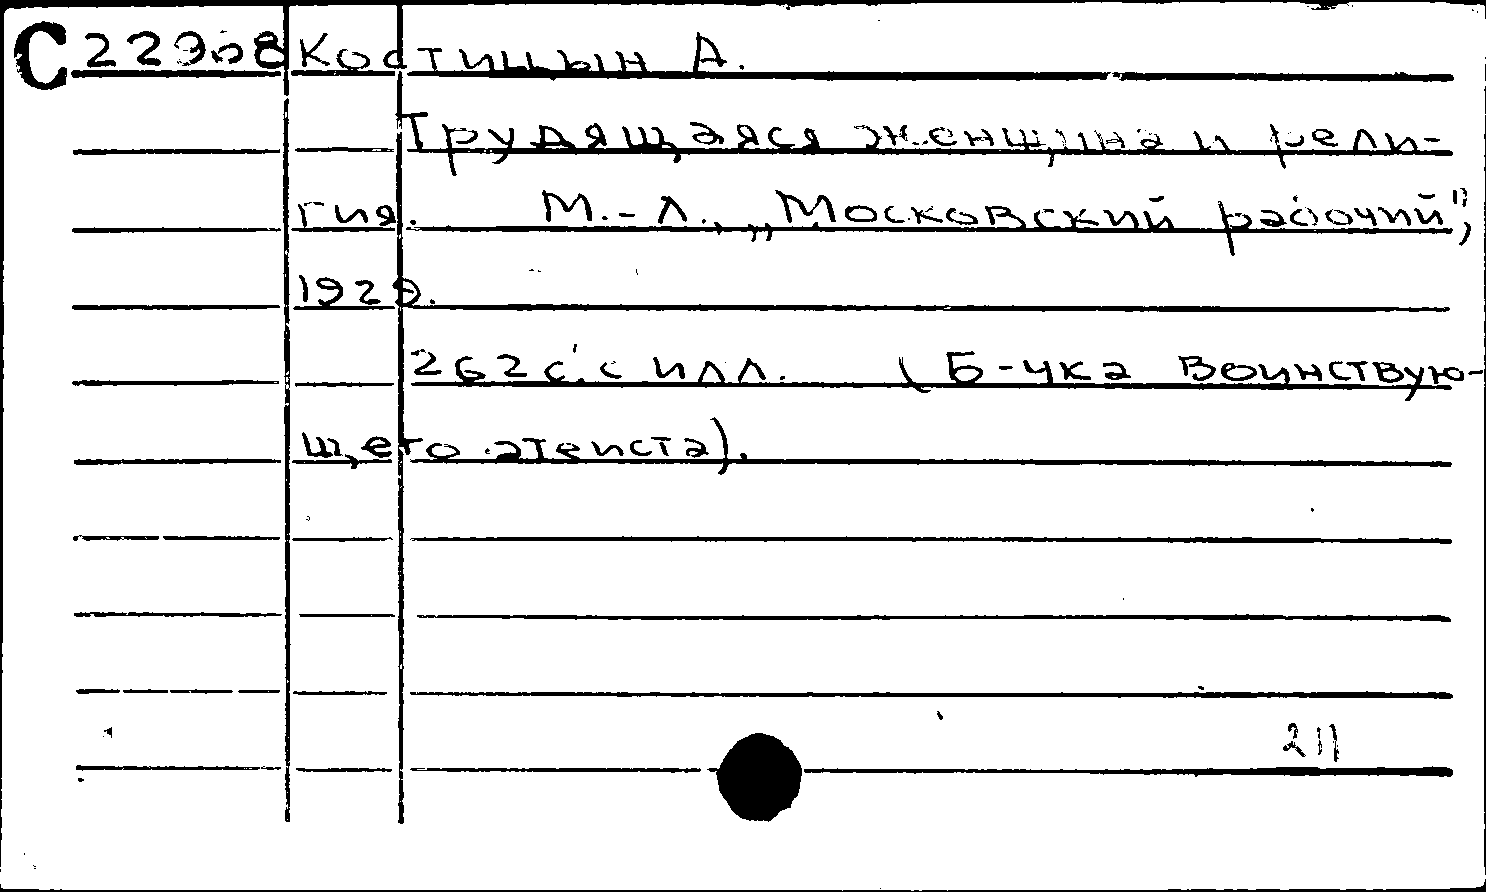 С 22908 Костицын А.
Трудящаяся женщина и рели-
гия. М.-Л., „Московский рабочий",
1929.
262 с. с илл. (Б-чка воинствую-
щего атеиста).
211